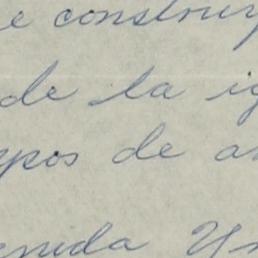 e construy
de la ig
pos de a
enida Un